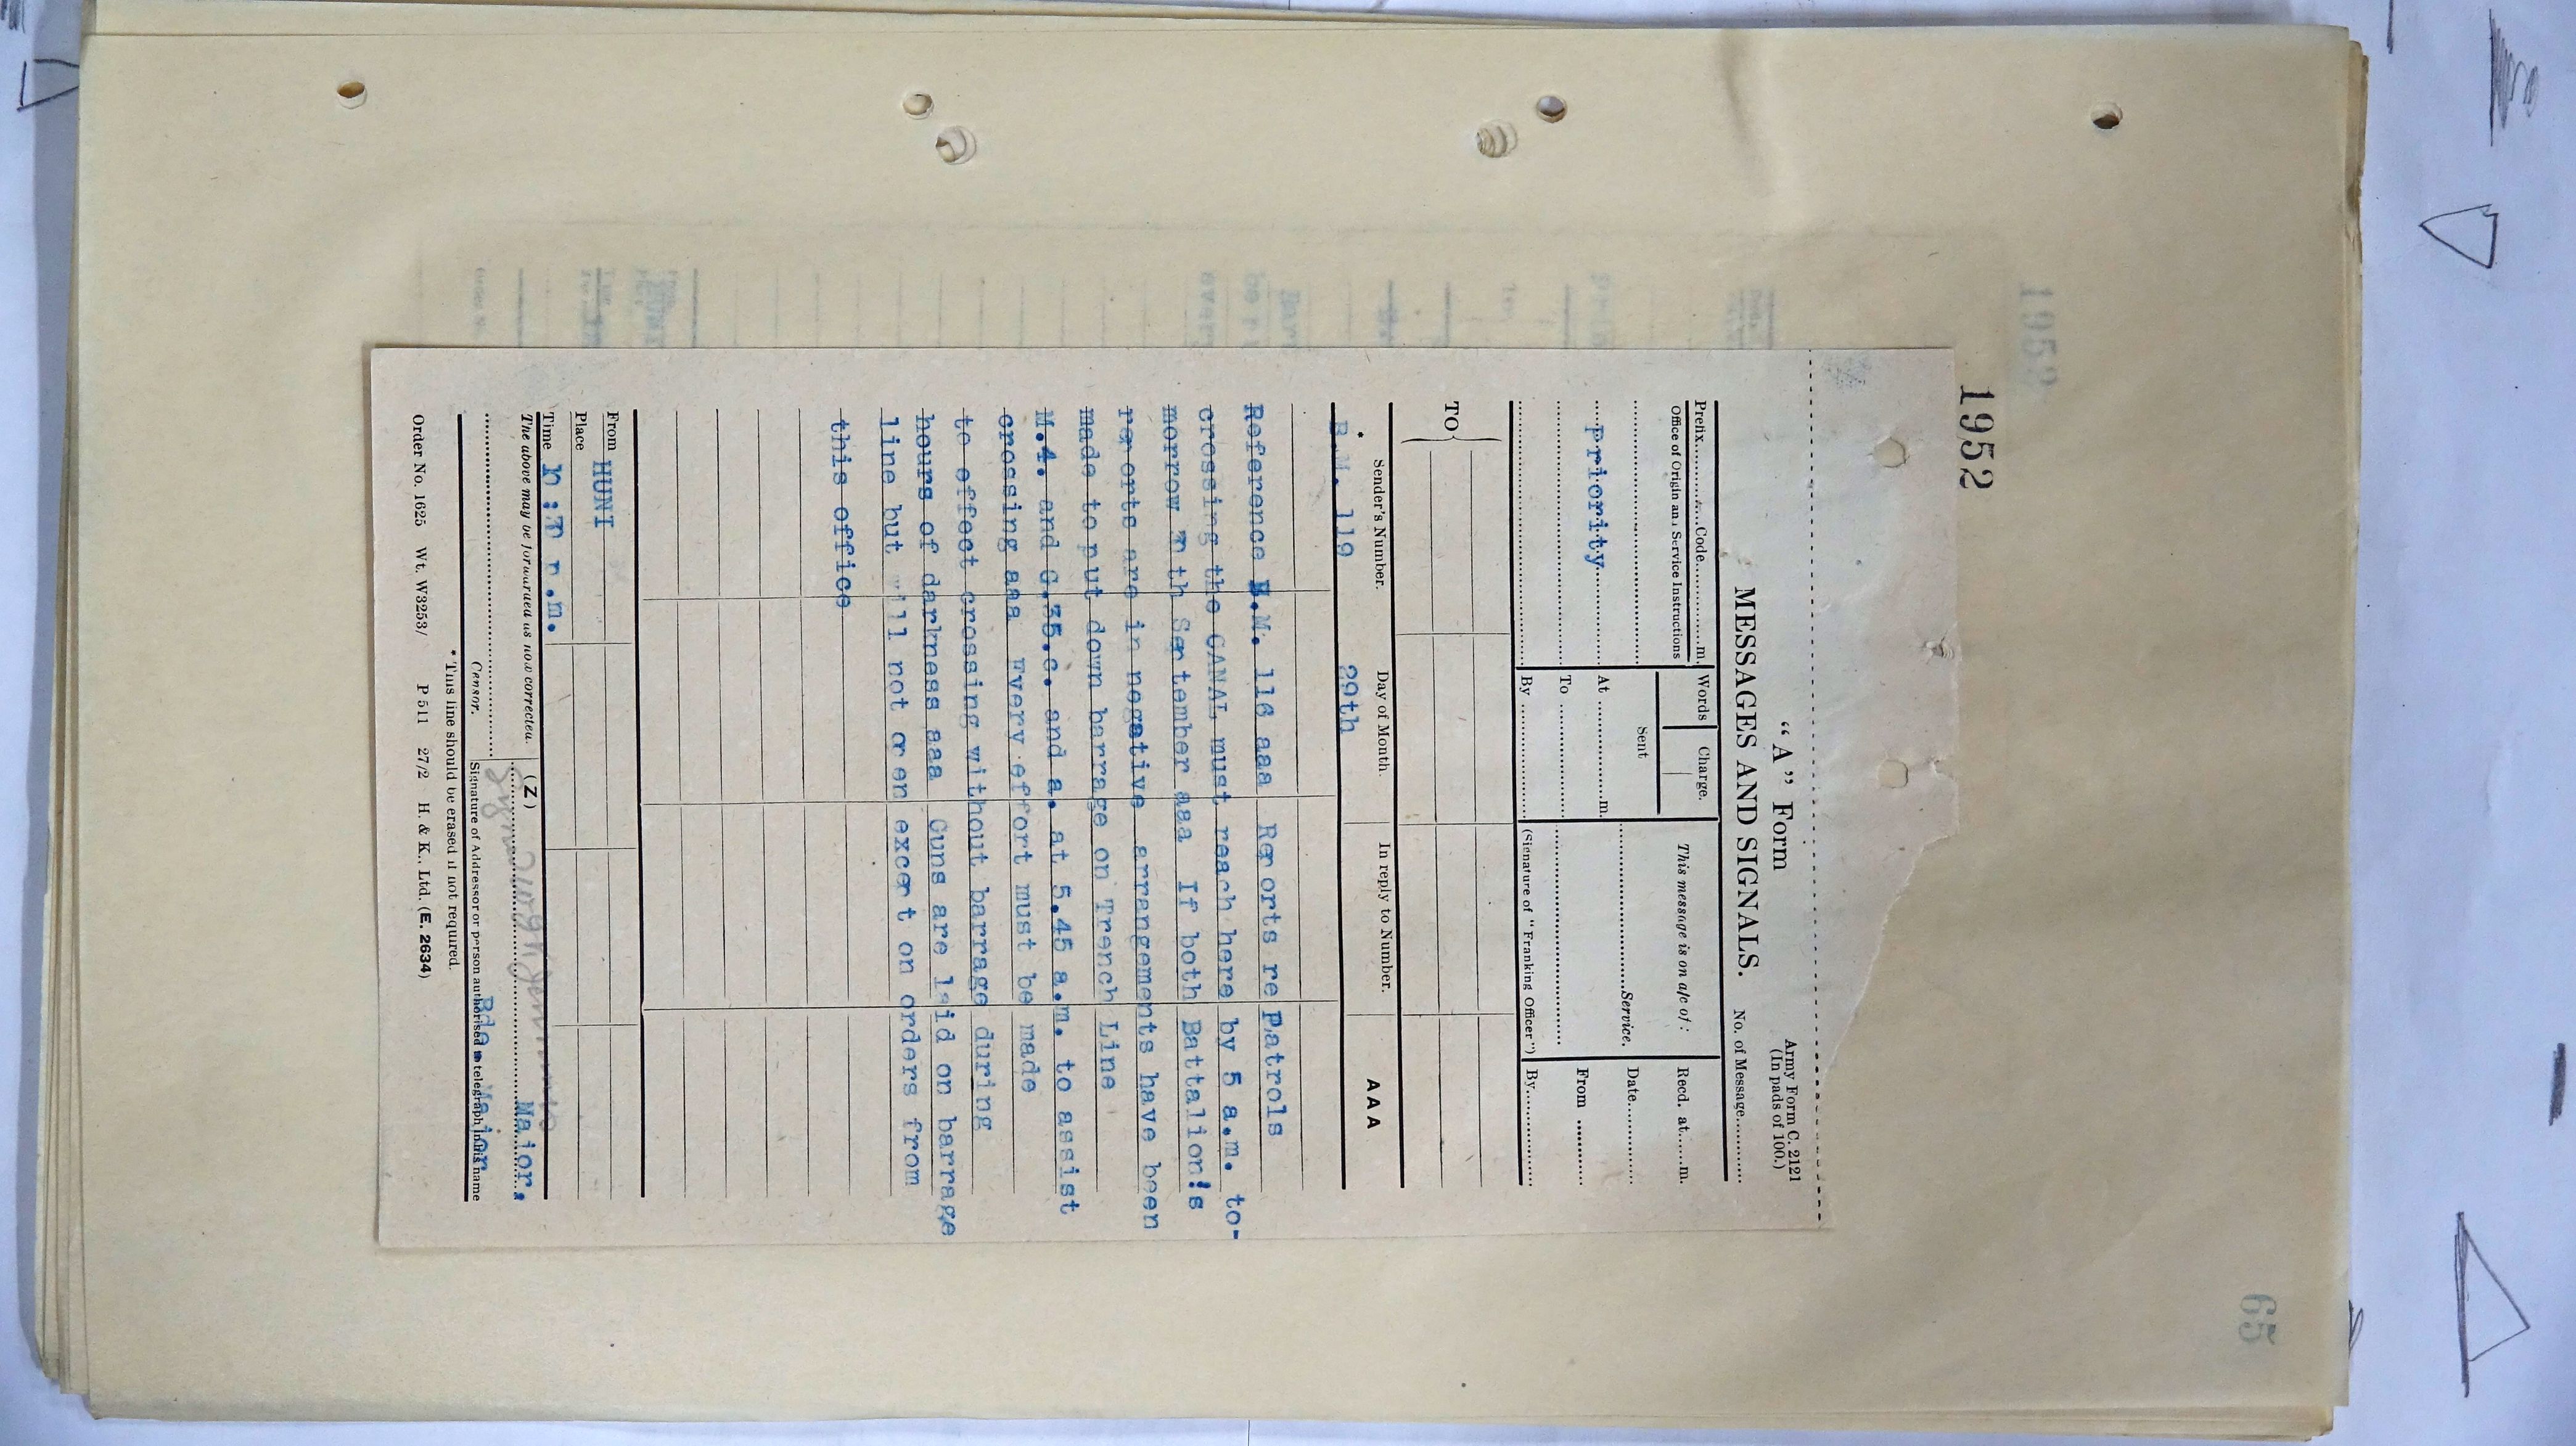 1952
"A" Form
Army Form C. 2121
(In pads of 100.)
MESSAGES AND SIGNALS.
No. of Message
Prefix Code m.
Words Charge.
This message is on a/c of:
Recd. at m.
Office of Origin and Service Instructions
Sent
Service.
Date
priority
At m.
From
To
By
(Signature of "Franking Officer")
By
TO
Sender's Number.
Day of Month.
In reply to Number.
AAA
* B.M. 119
29th
Reference B.M. 116 aaa Reports re Patrols
crossing the CANAL must reach here by 5 a.m. to-
morrow 30th September aaa If both Battalion's
reports are in negative arrangements have been
made to put down barrage on Trench Line
M.4. and G.35.c. and a. at 5.45 a.m. to assist
crossing aaa Every effort must be made
to effect crossing without barrage during
hours of darkness aaa Guns are laid on barrage
line but will not open except on orders from
this office
From HUNI
Place
Time
The above may be forwarded as now corrected.
(Z)
Major.
Censor.
Signature of Addressor or person authorised to telegraph in his name
Bde Major
* This line should be erased if not required.
Order No. 1625 Wt. W3253/ P 511 27/2 H. & K., Ltd. (E. 2634)
1952
65